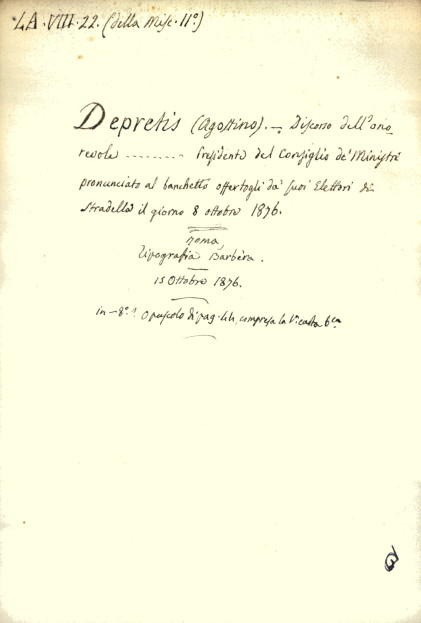 LA. VIII. 22. (della Misc. 11ª)
Depretis (Agostino). — Discorso dell'ono
revole .......... Presidente del Consiglio de' Ministri
pronunciato al banchetto offertogli da' suoi Elettori di
Stradella il giorno 8 ottobre 1876.
Roma,
Tipografia Barbèra.
15 Ottobre 1876.
in-8º. Opuscolo di pag. 44, compresa la